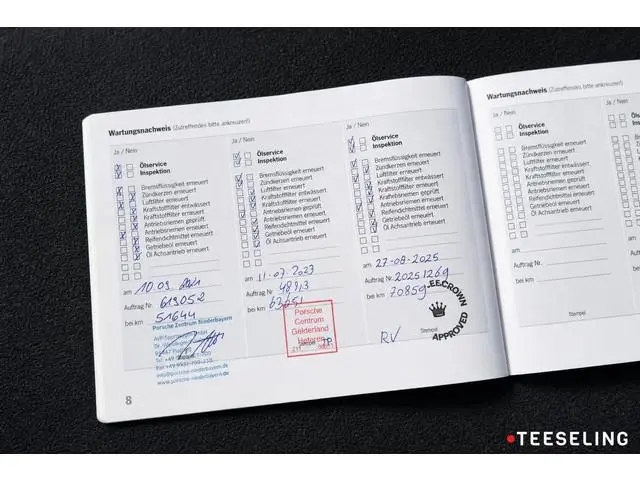 Wartungsnachweis (Zutreffendes bitte ankreuzen!)
Ja / Nein
Ölservice
Inspektion
Bremsflüssigkeit erneuert
Zündkerzen erneuert
Luftfilter erneuert
Kraftstofffilter entwässert
Kraftstofffilter erneuert
Antriebsriemen geprüft
Antriebsriemen erneuert
Reifendichtmittel erneuert
Getriebeöl erneuert
Öl Achsantrieb erneuert
am 10.09.
Auftrag Nr. 619052
bei km 51644
Porsche Zentrum Niederbayern
www.porsche-niederbayern.de
Ja / Nein
Ölservice
Inspektion
Bremsflüssigkeit erneuert
Zündkerzen erneuert
Luftfilter erneuert
Kraftstofffilter entwässert
Kraftstofffilter erneuert
Antriebsriemen geprüft
Antriebsriemen erneuert
Reifendichtmittel erneuert
Getriebeöl erneuert
Öl Achsantrieb erneuert
am 11-07-2023
Auftrag Nr.
bei km 63051
Porsche
Centrum
Gelderland
Heteren
Ja / Nein
Ölservice
Inspektion
Bremsflüssigkeit erneuert
Zündkerzen erneuert
Luftfilter erneuert
Kraftstofffilter entwässert
Kraftstofffilter erneuert
Antriebsriemen geprüft
Antriebsriemen erneuert
Reifendichtmittel erneuert
Getriebeöl erneuert
Öl Achsantrieb erneuert
am 27-08-2025
Auftrag Nr. 20251269
bei km 70859
RV
Stempel
CROWN
APPROVED
8
Wartungsnachweis (Zutreffendes bitte ankreuzen!)
Ja / Nein
Ölservice
Inspektion
Bremsflüssigkeit erneuert
Zündkerzen erneuert
Luftfilter erneuert
Kraftstofffilter entwässert
Kraftstofffilter erneuert
Antriebsriemen geprüft
Antriebsriemen erneuert
Reifendichtmittel erneuert
Getriebeöl erneuert
Öl Achsantrieb erneuert
am
Auftrag Nr.
bei km
Stempel
Ja / Nein
am
Auftrag Nr.
bei km
TEESELING